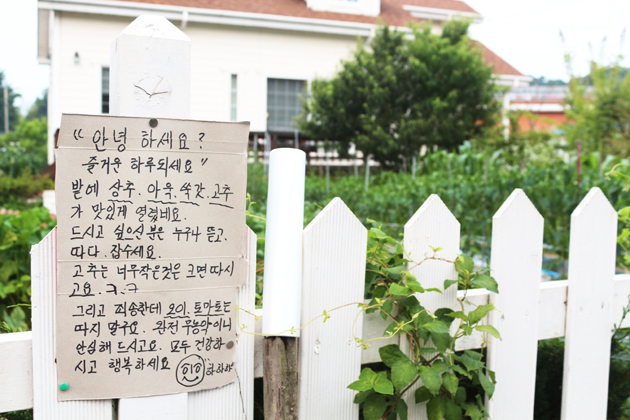 “안녕 하세요?
즐거운 하루되세요”
밭에 상추. 아욱. 쑥갓. 고추
가 맛있게 열렸네요.
드시고 싶으신분은 누구나 뜯고.
따다. 잡수세요.
고추는 너무작은것은 크면 따시
고요. ㅋㅋ
그리고 죄송한데 오이. 토마토는
따지 말구요. 완전 무농약이니
안심해 드시고요. 모두 건강하
시고 행복하세요 하하하